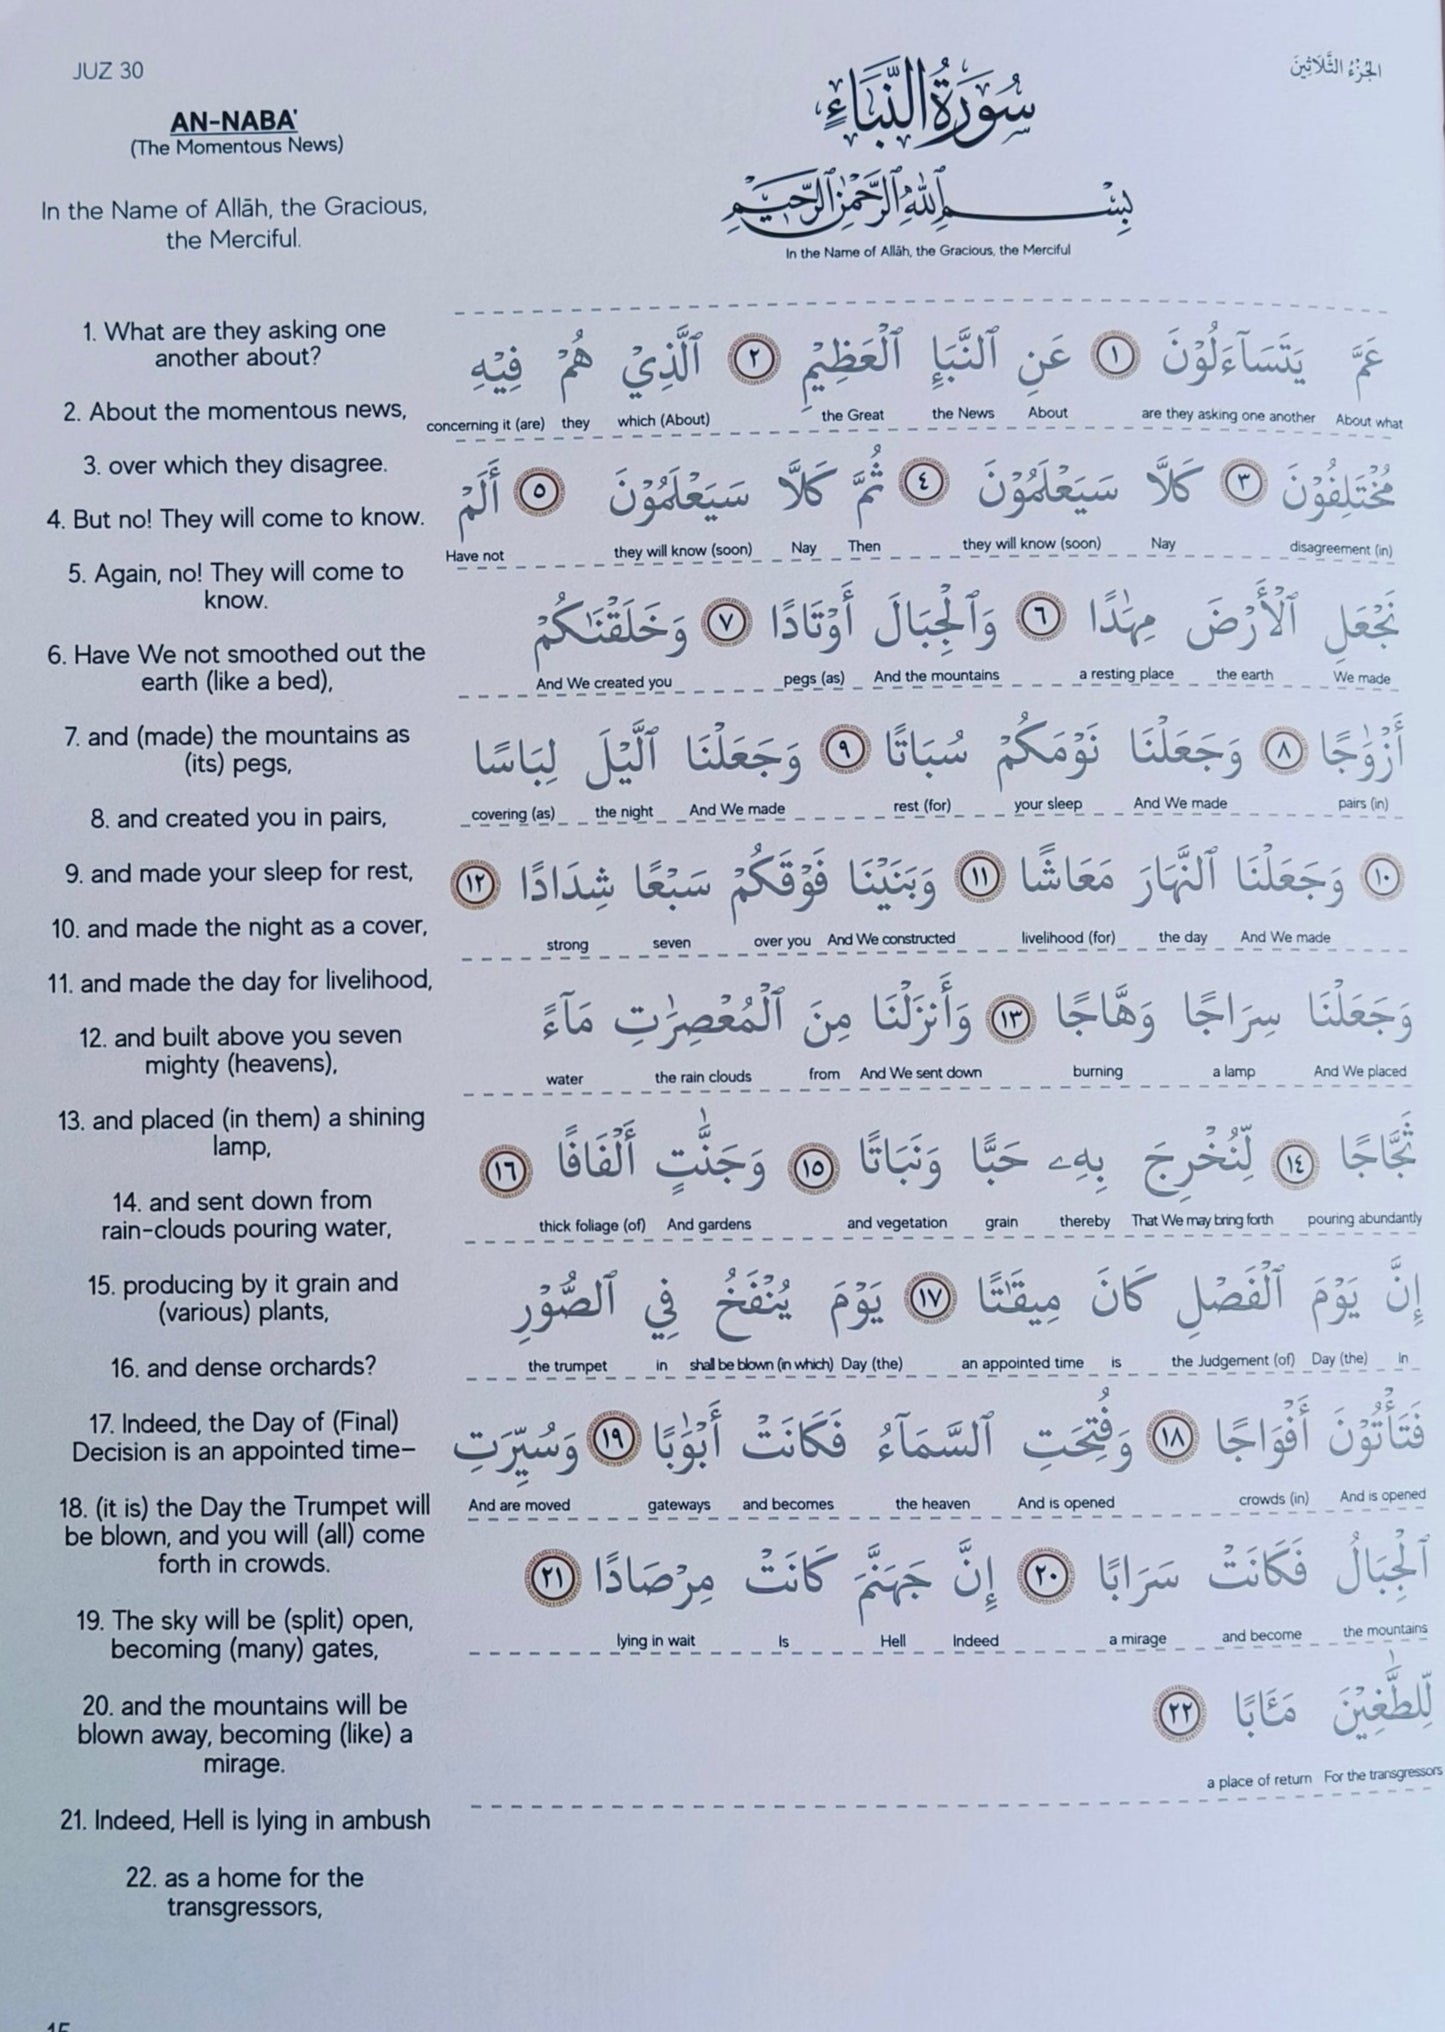 JUZ 30
الجُزْءُ الثَّلَاثِينَ
AN-NABA'
(The Momentous News)
In the Name of Allāh, the Gracious,
the Merciful.
1. What are they asking one
another about?
2. About the momentous news,
3. over which they disagree.
4. But no! They will come to know.
5. Again, no! They will come to
know.
6. Have We not smoothed out the
earth (like a bed),
7. and (made) the mountains as
(its) pegs,
8. and created you in pairs,
9. and made your sleep for rest,
10. and made the night as a cover,
11. and made the day for livelihood,
12. and built above you seven
mighty (heavens),
13. and placed (in them) a shining
lamp,
14. and sent down from
rain-clouds pouring water,
15. producing by it grain and
(various) plants,
16. and dense orchards?
17. Indeed, the Day of (Final)
Decision is an appointed time–
18. (it is) the Day the Trumpet will
be blown, and you will (all) come
forth in crowds.
19. The sky will be (split) open,
becoming (many) gates,
20. and the mountains will be
blown away, becoming (like) a
mirage.
21. Indeed, Hell is lying in ambush
22. as a home for the
transgressors,
سُورَةُ النَّبَاءِ
بِسْمِ ٱللَّهِ ٱلرَّحْمَٰنِ ٱلرَّحِيمِ
In the Name of Allāh, the Gracious, the Merciful
عَمَّ يَتَسَآءَلُوْنَ ١ عَنِ ٱلنَّبَإِ ٱلْعَظِيْمِ ٢ ٱلَّذِيْ هُمْ فِيْهِ
concerning it (are) they which (About) the Great the News About are they asking one another About what
مُخْتَلِفُوْنَ ٣ كَلَّا سَيَعْلَمُوْنَ ٤ ثُمَّ كَلَّا سَيَعْلَمُوْنَ ٥ أَلَمْ
Have not they will know (soon) Nay Then they will know (soon) Nay disagreement (in)
نَجْعَلِ ٱلْأَرْضَ مِهَٰدًا ٦ وَٱلْجِبَالَ أَوْتَادًا ٧ وَخَلَقْنَٰكُمْ
And We created you pegs (as) And the mountains a resting place the earth We made
أَزْوَٰجًا ٨ وَجَعَلْنَا نَوْمَكُمْ سُبَاتًا ٩ وَجَعَلْنَا ٱلَّيْلَ لِبَاسًا
covering (as) the night And We made rest (for) your sleep And We made pairs (in)
١٠ وَجَعَلْنَا ٱلنَّهَارَ مَعَاشًا ١١ وَبَنَيْنَا فَوْقَكُمْ سَبْعًا شِدَادًا ١٢
strong seven over you And We constructed livelihood (for) the day And We made
وَجَعَلْنَا سِرَاجًا وَهَّاجًا ١٣ وَأَنزَلْنَا مِنَ ٱلْمُعْصِرَٰتِ مَآءً
water the rain clouds from And We sent down burning a lamp And We placed
ثَجَّاجًا ١٤ لِّنُخْرِجَ بِهِۦ حَبًّا وَنَبَاتًا ١٥ وَجَنَّٰتٍ أَلْفَافًا ١٦
thick foliage (of) And gardens and vegetation grain thereby That We may bring forth pouring abundantly
إِنَّ يَوْمَ ٱلْفَصْلِ كَانَ مِيقَٰتًا ١٧ يَوْمَ يُنْفَخُ فِي ٱلصُّوْرِ
the trumpet in shall be blown (in which) Day (the) an appointed time is the Judgement (of) Day (the) In
فَتَأْتُوْنَ أَفْوَاجًا ١٨ وَفُتِحَتِ ٱلسَّمَآءُ فَكَانَتْ أَبْوَٰبًا ١٩ وَسُيِّرَتِ
And are moved gateways and becomes the heaven And is opened crowds (in) And is opened
ٱلْجِبَالُ فَكَانَتْ سَرَابًا ٢٠ إِنَّ جَهَنَّمَ كَانَتْ مِرْصَادًا ٢١
lying in wait Is Hell Indeed a mirage and become the mountains
لِّلطَّٰغِيْنَ مَـَٔابًا ٢٢
a place of return For the transgressors